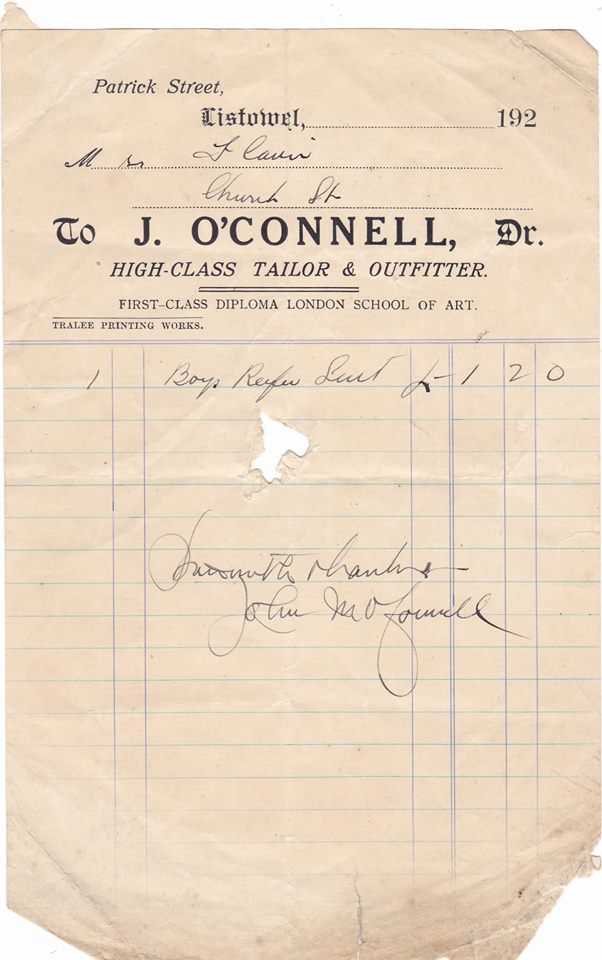 Patrick Street,
Listowel, 192
Mrs Flavin
Church St
To J. O'CONNELL, Dr.
HIGH-CLASS TAILOR & OUTFITTER.
FIRST-CLASS DIPLOMA LONDON SCHOOL OF ART.
TRALEE PRINTING WORKS.
1 Boys Reefer Suit £ 1 2 0
with thanks
John M O'Connell